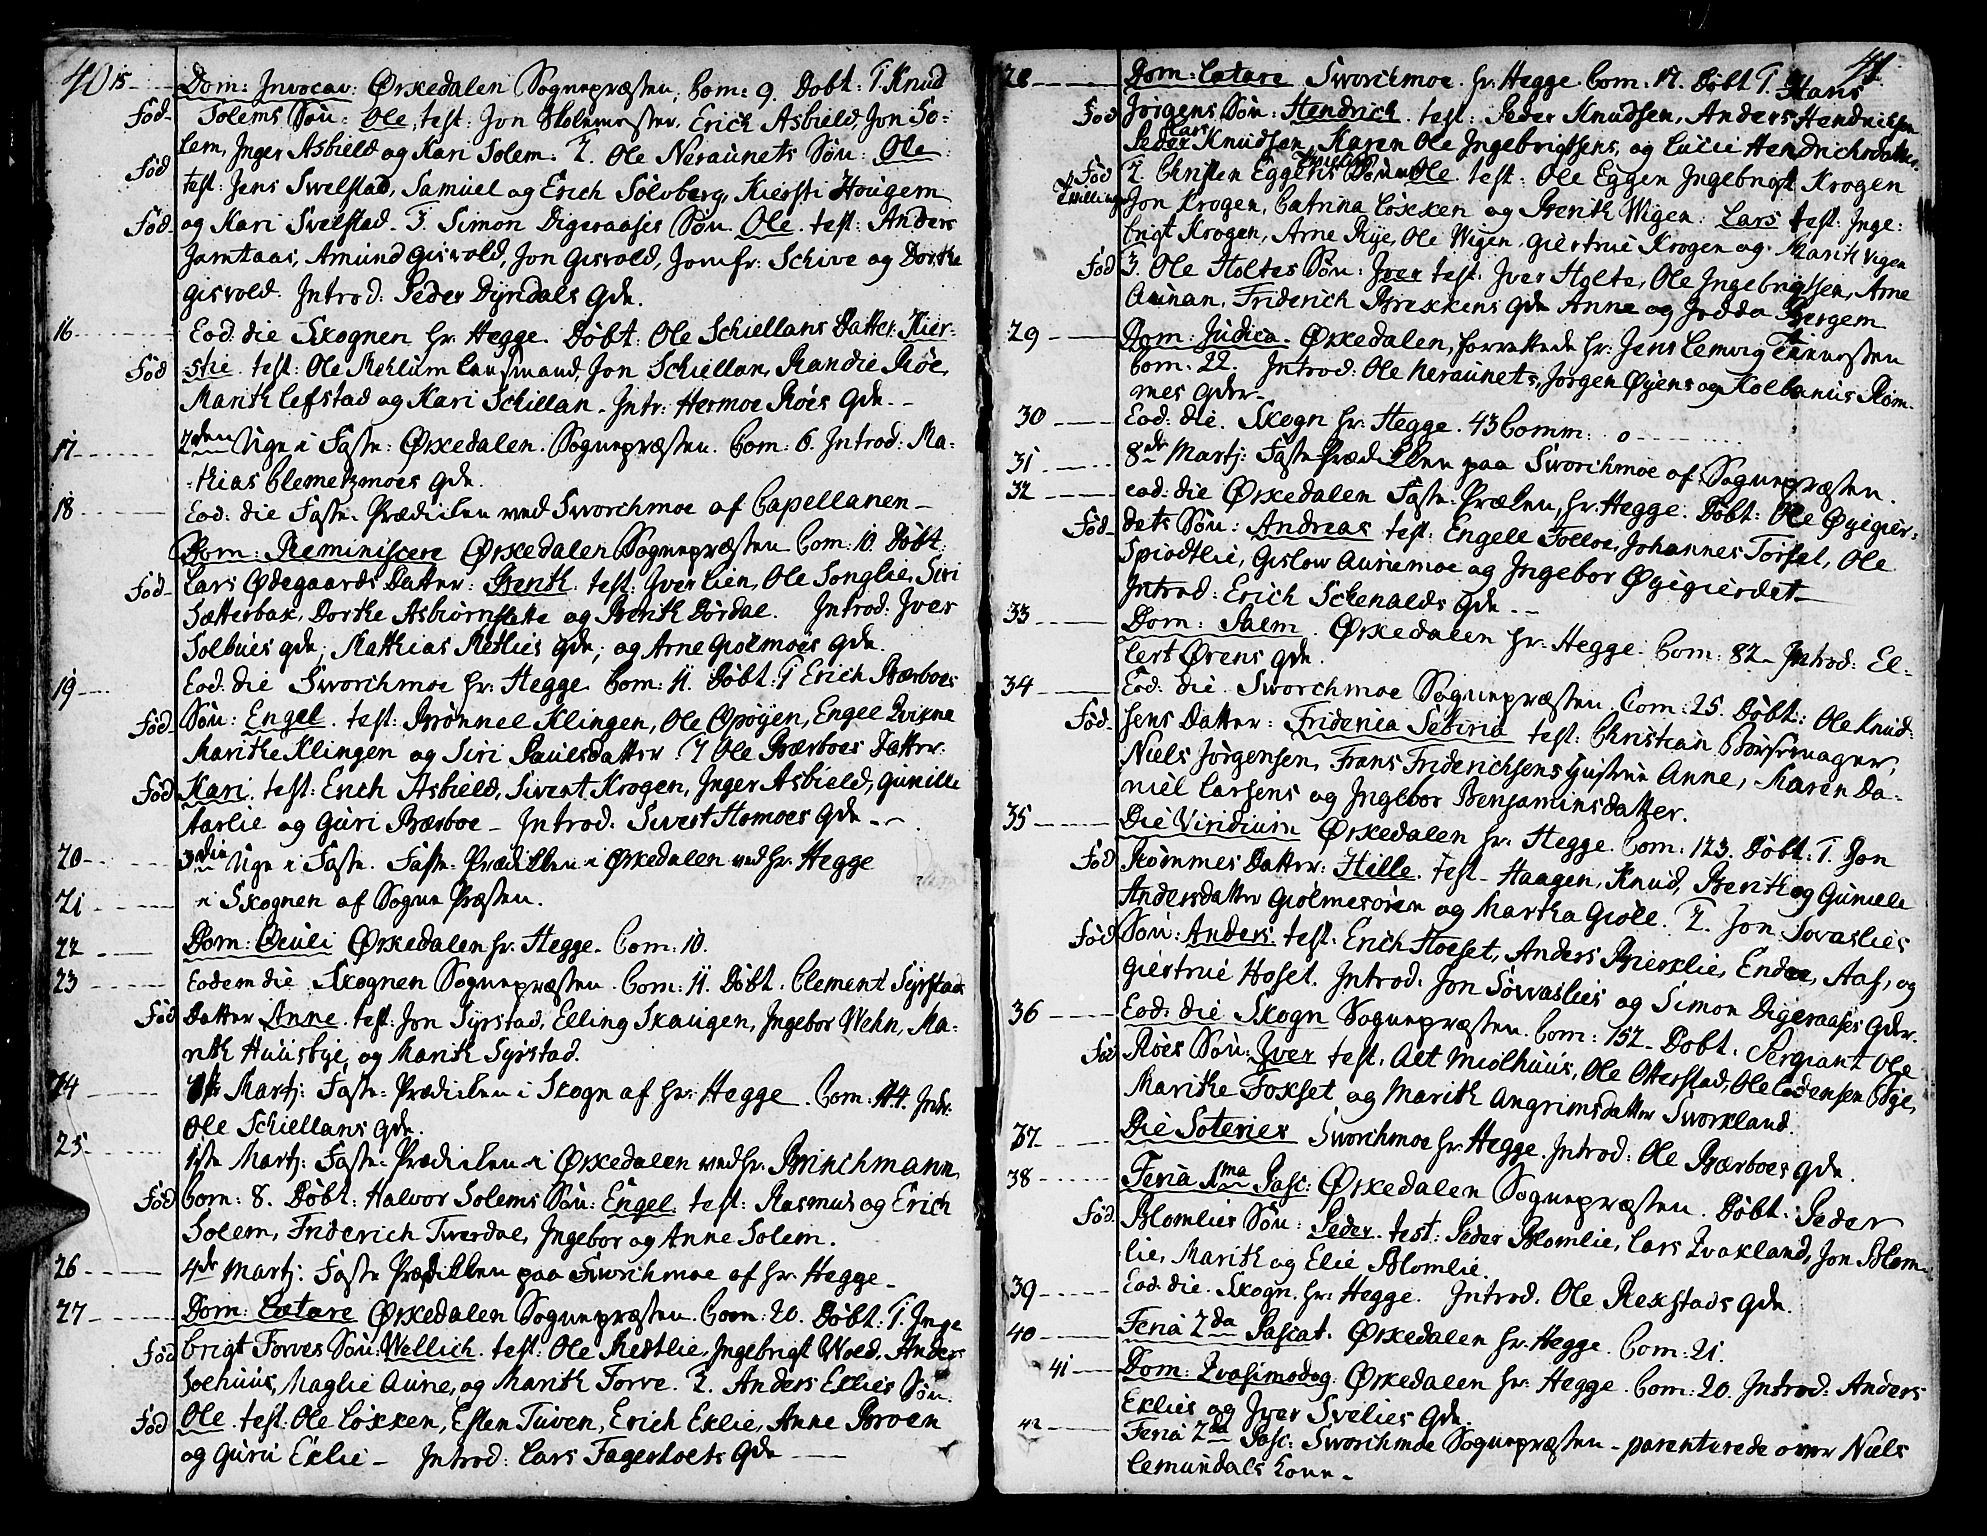 40
15 Dom: Invocav: Ørkedalen Sognepræsten, Com: 9. Døbt: 1. Knud
Fød Solems Søn: Ole, test: Jon Skolemester, Erich Asbield, Jon So-
lem, Inger Asbield og Kari Solem. 2. Ole Neraunets Søn: Ole
Fød test: Jens Swelstad, Samuel og Erich Solvberg, Kiersti Hougem
Fød og Kari Svelstad. 3. Simon Digeraases Søn Ole. test: Anders
Jamtaas, Amund Gisvold, Jon Gisvold, Jomfr: Schive og Dorthe
Gisvold. Introd: Peder Dyrdals Qde.
16 Eod: die Skognen hr: Hegge. Døbt: Ole Schiellans Datter Kier-
Fød stie. test: Ole Reklum Lensmand, Jon Schiellan, Randie Røe,
Marith Lefstad og Kari Schillan. Intr: Hermoe Røes Qde.
17 2den Uge i Faste: Ørkedalen. Sognepræsten. Com: 6. Introd: Ma-
thias Clemetzmoes Qde.
18 Eod: die Faste-Prædiken ved Sworchmoe af Capellanen
Dom: Reminiscere Ørkedalen Sognepræsten Com: 10. Døbt:
Fød Lars Ødegaards Datter: Berith. test: Iver Lien, Ole Songlie, Siri
Sætterbak, Dorthe Asbiørnslætte og Berith Dordal. Introd: Iver
Solbues Qde, Mathias Retlies Qde, og Arne Giolmoes Qde.
19 Eod: die Sworchmoe hr: Hegge. Com: 11. Døbt: 1 Erich Bærboes
Fød Søn: Engel. test: Brønnel Klingen, Ole Opøyen, Engel Qvikne
Marithe Klingen og Siri Paulsdatter. 2 Ole Bærboes Datter:
Fød Kari. test: Erich Asbield, Sivert Krogen, Inger Asbield, Gunille
Aarlie og Guri Bærboe. Introd: Swert Homoes Qde.
20 3die Uge i Faste. Faste-Prædiken i Ørkedalen ved hr: Hegge
21 i Skognen af Sogne Præsten.
22 Dom: Oculi Ørkedalen hr: Hegge. Com: 10.
23 Eodem die Skognen Sognepræsten. Com: 11. Døbt. Clement Syrstads
Fød Datter Anne. test: Jon Syrstad, Elling Skaugen, Ingebor Wehn, Ma-
rith Huusbye og Marith Syrstad.
24 Martj: Faste-Prædiken i Skogn af hr: Hegge. Com: 44. Intr:
Ole Schiellans Qde.
25 Martj: Faste-Prædiken i Ørkedalen ved hr: Brinchmann,
Fød Com: 8. Døbt: Halvor Solems Søn: Engel. test: Rasmus og Erich
Solem, Friderich Twerdal, Ingebor og Anne Solem.
26 4de Martj: Faste Prædiken paa Sworchmoe af hr: Hegge
27 Dom: Lætare Ørkedalen Sognepræsten. Com: 20. Døbt: 1. Inge
Fød brigt Forves Søn: Wellich. test: Ole Retlie, Ingebrigt Wold, Anders
Soehuus, Maglie Aune, og Marith Forve. 2. Anders Eklies Søn
Fød Ole. test: Ole Løkken, Esten Tuven, Erich Eklie, Anne Broen
og Guru Eklie. Introd: Lars Fagerholts Qde
41
28 Dom: Lætare Sworchmoe. hr: Hegge. Com: 17. Døbt 1. Hans
Fød Jørgens Søn: Hendrich. test: Peder Knudsen, Anders Hendrichsen
Lars
Peder Knudsen, Karen Ole Ingebrigtsens, og Lucie Hendrichsdatter.
Fød 2. Christen Eggens Sønner Ole. test: Ole Eggen Ingebrigt Krogen
Tvillinger Jon Krogen, Catrina Løkken og Berith Wigen. Lars test: Inge-
brigt Krogen, Arne Rye, Ole Wigen, Giertrue Krogen og Marith Vigen
Fød 3. Ole Holtes Søn: Iver test: Iver Holte, Ole Ingebrigtsen, Arne
Aunan, Friderich Brekkens Qde Anne og Jodda Bergem
29 Dom: Judica. Ørkedalen, forrettede hr: Jens Lemvig
Com. 22. Introd: Ole Neraunets, Jørgen Øyens og Kolbanus Røm-
mes Qder.
30 Eod: die. Skogn hr: Hegge. 43 Comm: 0
31 8de Martj: Faste Prædiken paa Sworchmoe af Sognepræsten.
32 eod: die Ørkedalen Faste-Præken, hr: Hegge. Døbt: Ole Øyigier-
Fød dets Søn: Andreas test: Engell Folloe, Johannes Torset, Ole
Spiodtlie, Gislow Aunemoe og Ingebor Øyigierdet
Introd: Erich Schenalds Qde.
33 Dom: Palm. Ørkedalen hr: Hegge. Com: 82. Introd: El-
lert Ørens Qde.
34 Eod: die. Sworchmoe Sognepræsten. Com: 25. Døbt: Ole Knud-
Fød sens Datter: Friderica Severia test: Christian Børsemager,
Niels Jørgensen, Frans Friderichsens Hustrue Anne, Maren Da-
niel Larsens og Ingebor Benjaminsdatter.
35 Die Viridium Ørkedalen hr: Hegge. Com: 123. Døbt: 1. Jon
Fød Rømmes Datter: Hille. test. Haagen, Knud, Berith og Gunele
Andersdatter Giolmesøien og Martha Giole. 2. Jon Sovaslies
Fød Søn: Anders. test: Erich Hoeset, Anders Bierklie, Endre, Aas, og
Giertrue Hoset. Introd: Jon Sowaslies og Simon Digeraases Qder.
36 Eod: die Skogn Sognepræsten. Com: 152. Døbt. Sergiant Ole
Fød Røes Søn: Iver test. Alt Miolhuus, Ole Otterstad, Ole Endensen Bye,
Marithe Foxset og Marith Angrimsdatter Sworkland.
37 Die Soteries Sworchmoe hr: Hegge. Introd: Ole Bærboes Qde.
38 Feria 1ma Pasc: Ørkedalen Sognepræsten. Døbt: Peder
Fød Blomlies Søn: Peder. test: Peder Blomlie, Lars Qvakland, Jon Blom-
lie, Marith og Elie Blomlie.
39 Eod: die. Skogn. hr: Hegge. Introd: Ole Rekstads Qde.
40 Feria 2da Pascat. Ørkedalen hr: Hegge. Com: 21.
41 Dom: Qvasimodog: Ørkedalen hr: Hegge. Com: 20. Introd: Anders
Eklies og Iver Svelies Qde.
42 Feria 2da Pasc: Sworchmoe Sognepræsten - parenterede over Niels
Lemundals Kone.